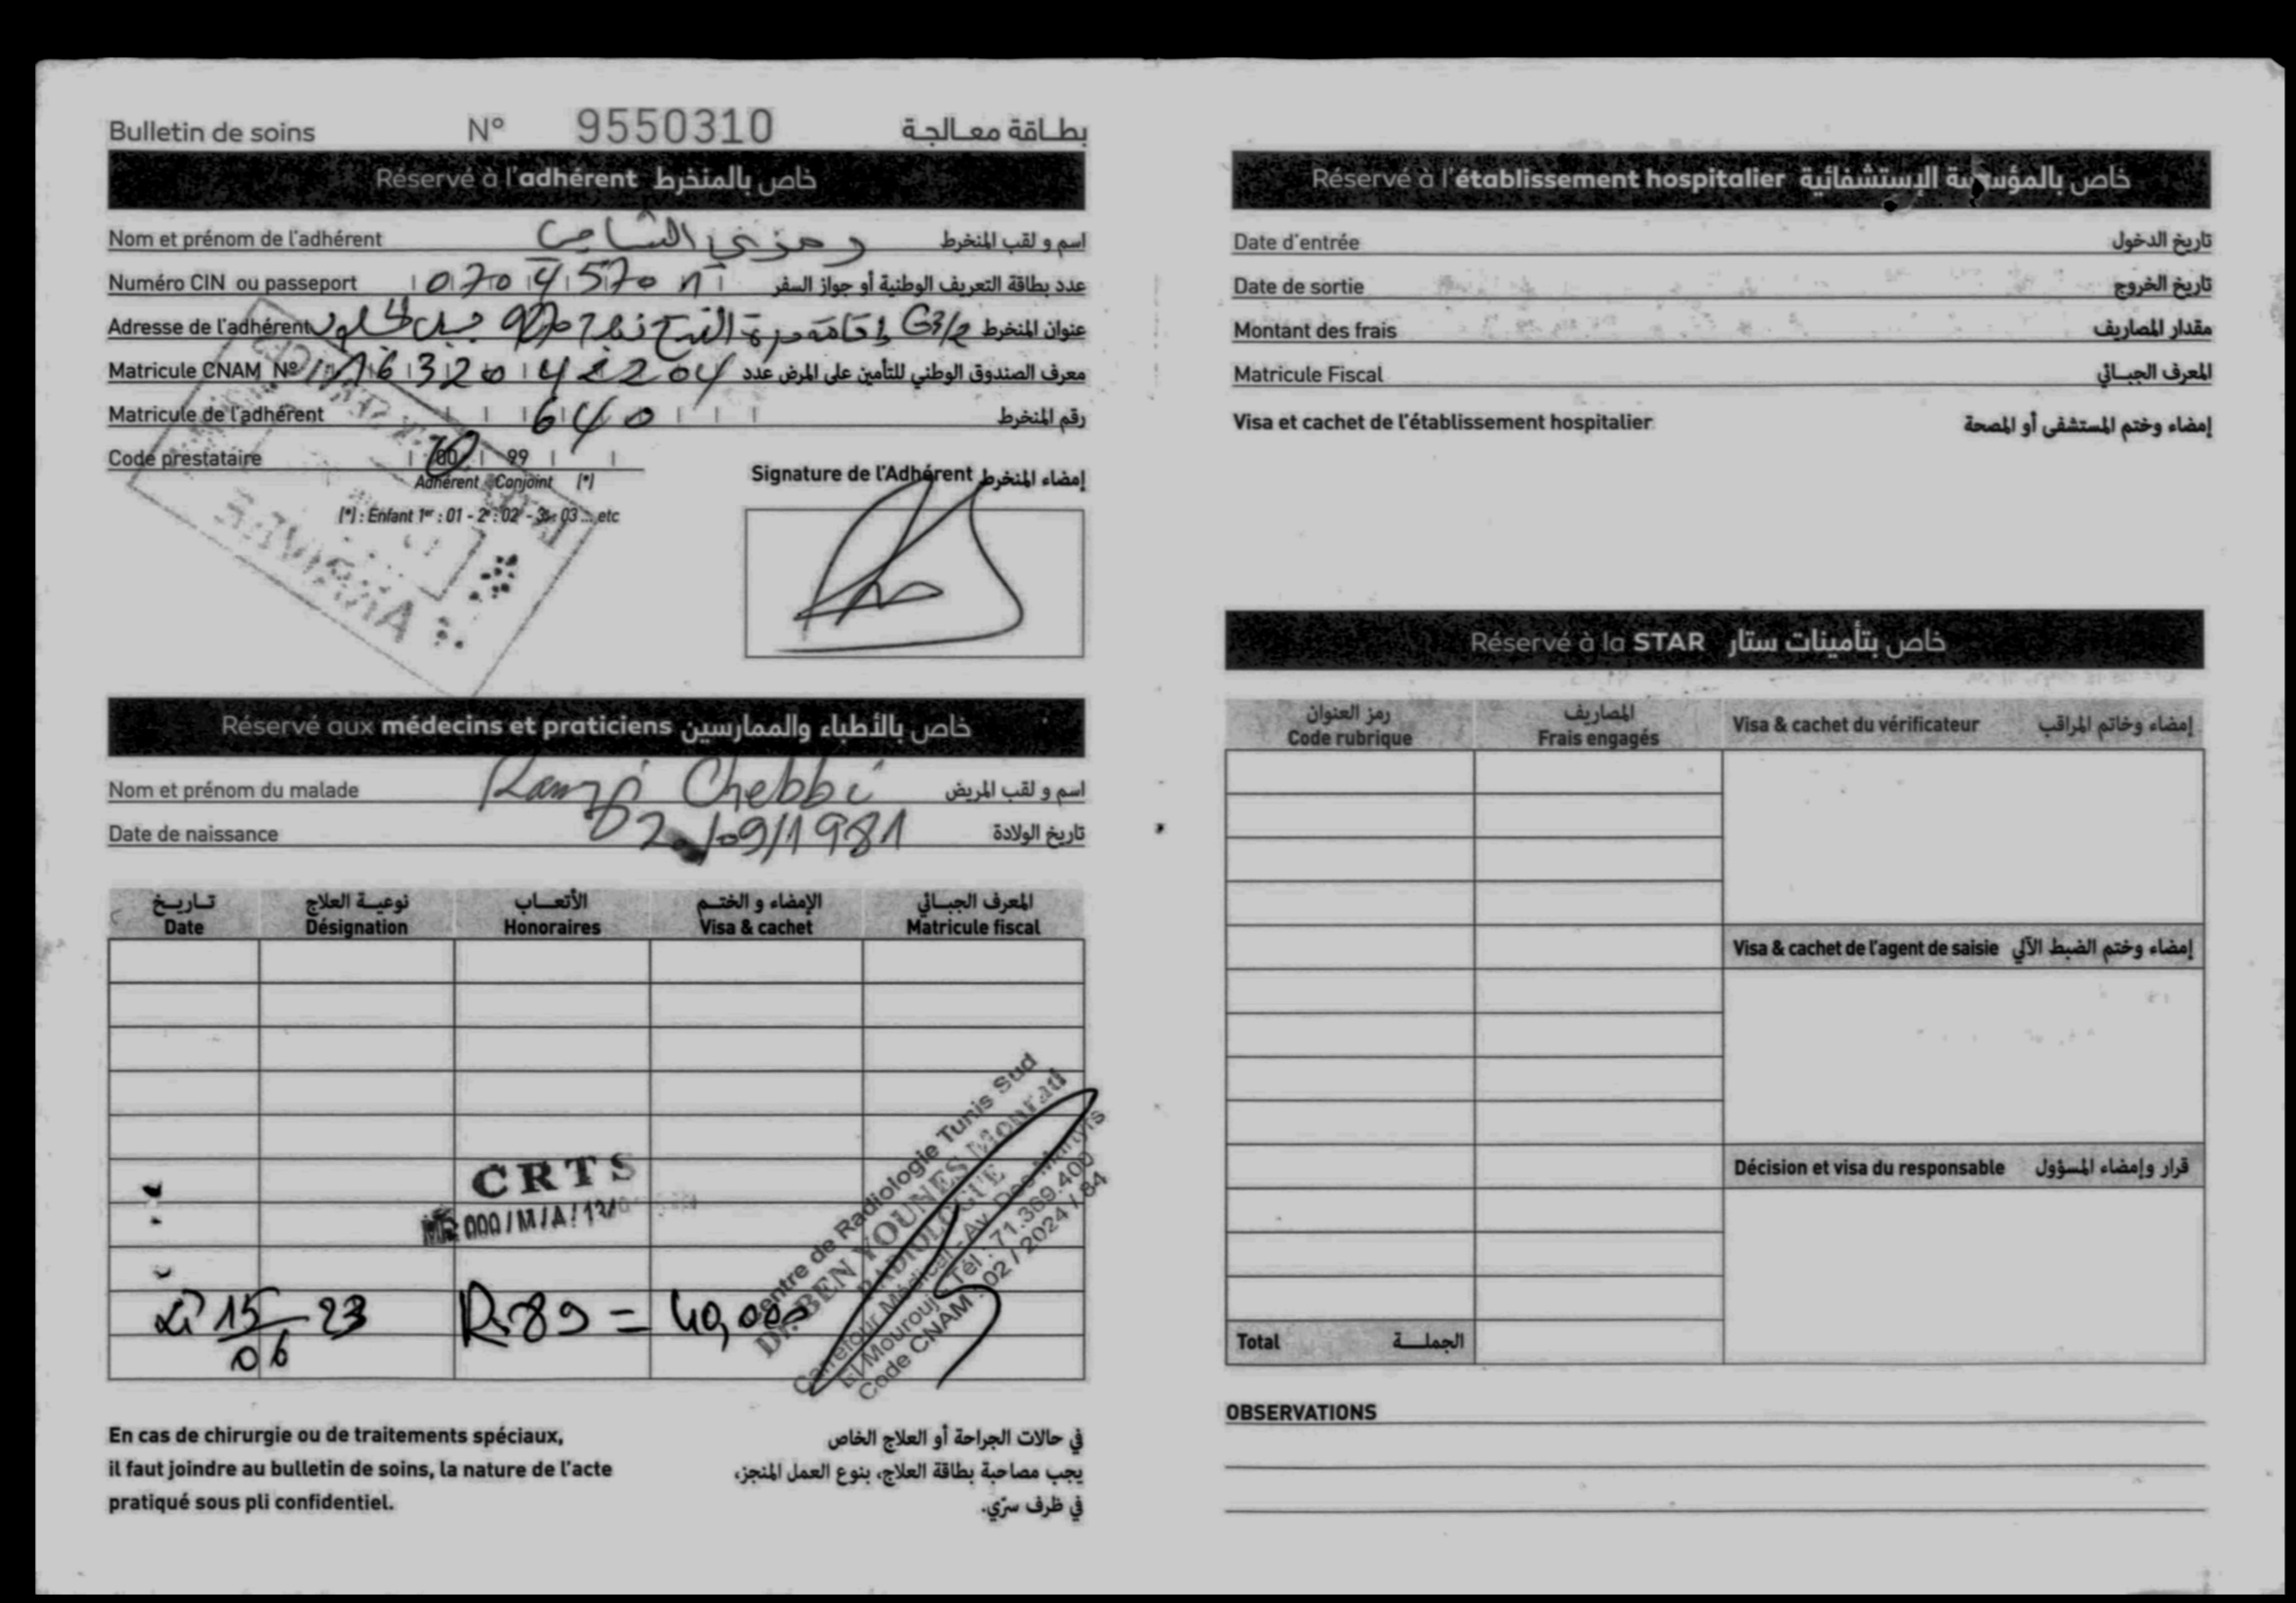 Bulletin de soins N° 9550310 بطاقة معالجة
Réservé à l'adhérent خاص بالمنخرط
Nom et prénom de l'adhérent رمزي الشابي اسم و لقب المنخرط
Numéro CIN ou passeport عدد بطاقة التعريف الوطنية أو جواز السفر
Adresse de l'adhérent G3/2 إقامة عنوان المنخرط
Matricule CNAM N° معرف الصندوق الوطني للتأمين على المرض عدد
Matricule de l'adhérent 640 رقم المنخرط
Code prestataire 00 99
Adhérent Conjoint (*)
(*) : Enfant 1er : 01 - 2e : 02 - 3e : 03 ... etc
Signature de l'Adhérent إمضاء المنخرط
Réservé aux médecins et praticiens خاص بالأطباء والممارسين
Nom et prénom du malade Ramzi Chebbi اسم و لقب المريض
Date de naissance 02/09/1981 تاريخ الولادة
تاريخ نوعية العلاج الأتعاب الإمضاء و الختم المعرف الجبائي
Date Désignation Honoraires Visa & cachet Matricule fiscal
CRTS
000/M/A/13/0
15/06 23 R.89 = 40,000
Centre de Radiologie Tunis Sud
Dr. BEN YOUNES Mourad
RADIOLOGUE
Carrefour Médical - Av. Des Martyrs
El Mourouj - Tél : 71.369.400
Code CNAM : 02 / 2024 / 84
En cas de chirurgie ou de traitements spéciaux,
il faut joindre au bulletin de soins, la nature de l'acte
pratiqué sous pli confidentiel.
في حالات الجراحة أو العلاج الخاص
يجب مصاحبة بطاقة العلاج، بنوع العمل المنجز،
في ظرف سرّي.
Réservé à l'établissement hospitalier خاص بالمؤسسة الإستشفائية
Date d'entrée تاريخ الدخول
Date de sortie تاريخ الخروج
Montant des frais مقدار المصاريف
Matricule Fiscal المعرف الجبائي
Visa et cachet de l'établissement hospitalier إمضاء وختم المستشفى أو المصحة
Réservé à la STAR خاص بتأمينات ستار
رمز العنوان المصاريف
Code rubrique Frais engagés Visa & cachet du vérificateur إمضاء وخاتم المراقب
Visa & cachet de l'agent de saisie إمضاء وختم الضبط الآلي
Décision et visa du responsable قرار وإمضاء المسؤول
Total الجملة
OBSERVATIONS